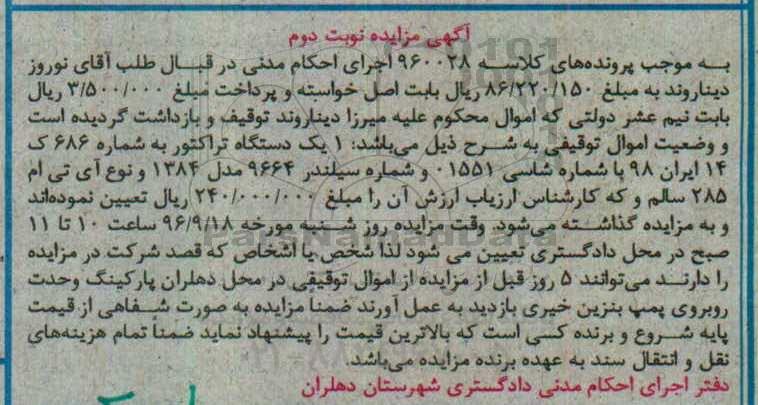 آگهی مزایده نوبت دوم
به موجب پرونده‌های کلاسه ۹۶۰۰۲۸ اجرای احکام مدنی در قبال طلب آقای نوروز
دیناروند به مبلغ ۸۶/۲۲۰/۱۵۰ ریال بابت اصل خواسته و پرداخت مبلغ ۳/۵۰۰/۰۰۰ ریال
بابت نیم عشر دولتی که اموال محکوم علیه میرزا دیناروند توقیف و بازداشت گردیده است
و وضعیت اموال توقیفی به شرح ذیل می‌باشد: ۱ یک دستگاه تراکتور به شماره ۶۸۶ ک
۱۴ ایران ۹۸ با شماره شاسی ۰۱۵۵۱ و شماره سیلندر ۹۶۶۴ مدل ۱۳۸۴ و نوع آی تی ام
۲۸۵ سالم و که کارشناس ارزیاب ارزش آن را مبلغ ۲۴۰/۰۰۰/۰۰۰ ریال تعیین نموده‌اند
و به مزایده گذاشته می‌شود. وقت مزایده روز شنبه مورخه ۹۶/۹/۱۸ ساعت ۱۰ تا ۱۱
صبح در محل دادگستری تعیین می شود لذا شخص یا اشخاص که قصد شرکت در مزایده
را دارند می‌توانند ۵ روز قبل از مزایده از اموال توقیفی در محل دهلران پارکینگ وحدت
روبروی پمپ بنزین خیری بازدید به عمل آورند ضمنا مزایده به صورت شفاهی از قیمت
پایه شروع و برنده کسی است که بالاترین قیمت را پیشنهاد نماید ضمنا تمام هزینه‌های
نقل و انتقال سند به عهده برنده مزایده می‌باشد.
دفتر اجرای احکام مدنی دادگستری شهرستان دهلران
ParsNamadData